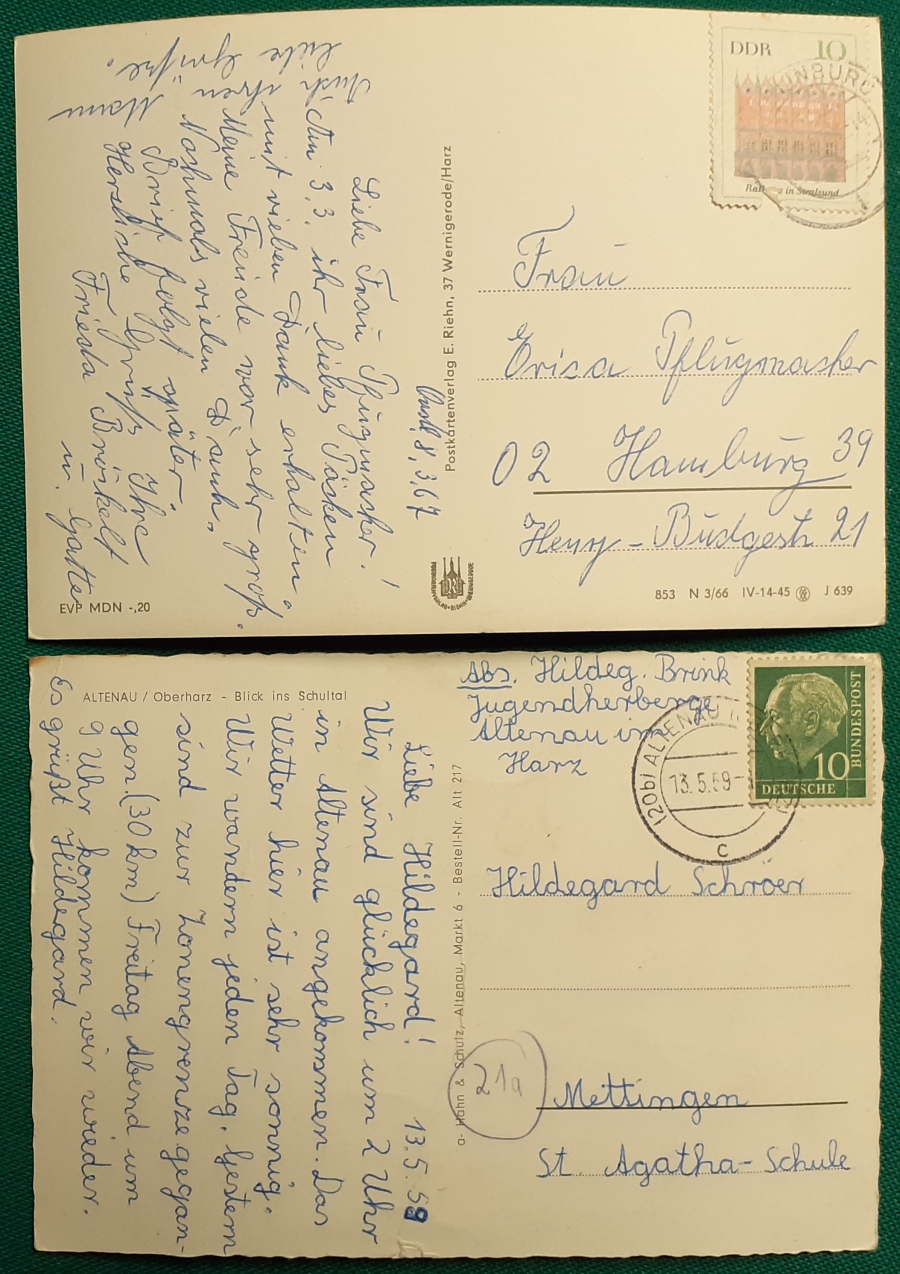 DDR 10
Rathaus in Stralsund
Liebe Frau Pflugmacher!
Am 3.3. ihr liebes Päcken
mit vielen Dank erhalten.
Meine Freude war sehr groß.
Nohmals vielen Dank.
Brief folgt später.
Herzliche Grüße Ihre
Frieda Brinkelt
u. Gatte
Auch
liebe Grüße.
8.3.67
Postkartenverlag E. Riehn, 37 Wernigerode/Harz
Frau
Erica Pflugmacher
02 Hamburg 39
Heny-Budgestr 21
EVP MDN -,20
853 N 3/66 IV-14-45 J 639
ALTENAU / Oberharz - Blick ins Schultal
Abs. Hildeg. Brink
Jugendherberge
Altenau im
Harz
10
DEUTSCHE
BUNDESPOST
(20b) ALTENAU
13.5.59
c
13.5.59
Liebe Hildegard!
Wir sind glücklich um 2 Uhr
in Altenau angekommen. Das
Wetter hier ist sehr sonnig.
Wir wandern jeden Tag. Gestern
sind zur Zonengrenze gegan-
gen. (30 km) Freitag Abend um
9 Uhr kommen wir wieder.
Es grüßt Hildegard.
Hahn & Schütz, Altenau, Markt 6 - Bestell-Nr. Alt 217
Hildegard Schröer
21a
Mettingen
St. Agatha-Schule